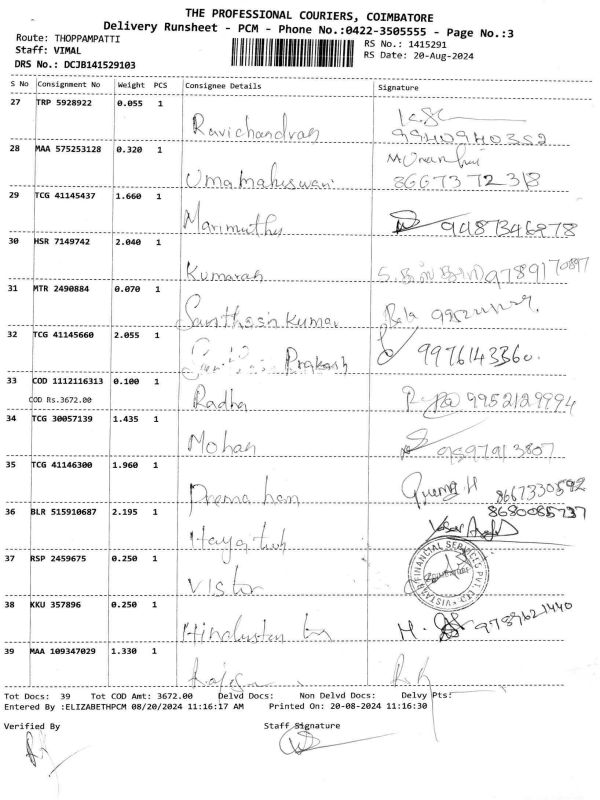 THE PROFESSIONAL COURIERS, COIMBATORE
Delivery Runsheet - PCM - Phone No.:0422-3505555 - Page No.:3
Route: THOPPAMPATTI
RS No.: 1415291
Staff: VIMAL
RS Date: 20-Aug-2024
DRS No.: DCJB141529103
S No Consignment No Weight PCS Consignee Details Signature
27 TRP 5928922 0.055 1 Ravichandran
9940940352
28 MAA 575253128 0.320 1 Umamaheswari
8667372318
29 TCG 41145437 1.660 1 Marimuthu 9487346978
30 HSR 7149742 2.040 1 Kumaran 9789170897
31 MTR 2490884 0.070 1 Santhosh Kumar Bala
32 TCG 41145660 2.055 1 Prakash 9976143360.
33 COD 1112116313 0.100 1 Radha 9952129994
COD Rs.3672.00
34 TCG 30057139 1.435 1 Mohan 9597913807
35 TCG 41146300 1.960 1 8667330592
36 BLR 515910687 2.195 1 8680085737
37 RSP 2459675 0.250 1 Vistar
VISTAAR FINANCIAL SERVICES PVT. LTD.
COIMBATORE
38 KKU 357896 0.250 1 Hindustan 9789621440
39 MAA 109347029 1.330 1
Tot Docs: 39 Tot COD Amt: 3672.00 Delvd Docs: Non Delvd Docs: Delvy Pts:
Entered By :ELIZABETHPCM 08/20/2024 11:16:17 AM Printed On: 20-08-2024 11:16:30
Verified By Staff Signature